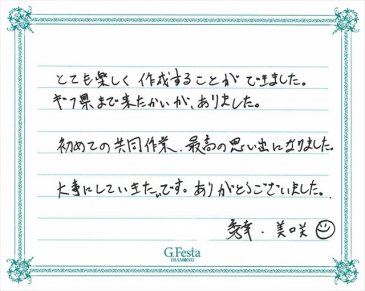 とても楽しく作成することができました。
ギフ県まで来たかいが、ありました。
初めての共同作業、最高の思い出になりました。
大事にしていきたいです。ありがとうございました。
美咲
G.Festa
DIAMOND